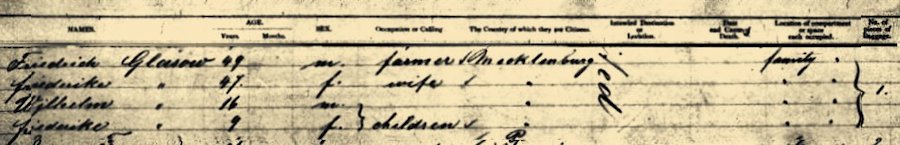 NAMES. AGE. Years. Months. SEX. Occupation or Calling The Country of which they are Citizens. Intended Destination or Location. Date and Cause of Death. Location of compartment or space each occupied. No. of Pieces of Baggage.
Friedrich Glasow 49 m. farmer Mecklenburg family
friederike " 47 f. wife " " 1.
Wilhelm " 16 m. " "
friederike " 9 f. } children " "